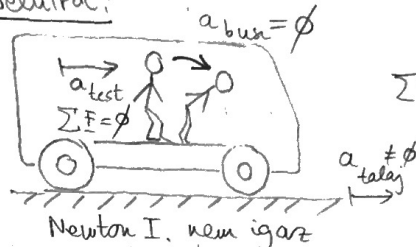 a busz = ∅
a test
Σ F = ∅
Σ
a talaj ≠ ∅
Newton I. nem igaz